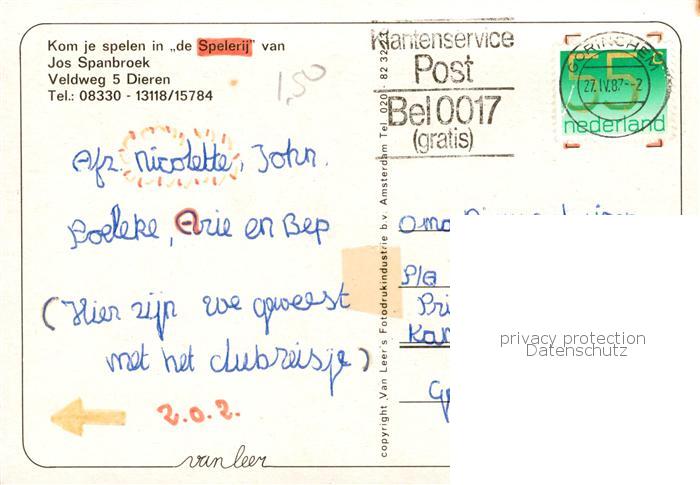 Kom je spelen in „de Spelerij" van
Jos Spanbroek
Veldweg 5 Dieren
Tel.: 08330 - 13118/15784
1,50
Klantenservice
Post
Bel 0017
(gratis)
GORINCHEM
27.IV.8
55 c
nederland
Afz. Nicolette, John.
Boeleke, Arie en Bep
(Hier zijn we geweest
met het clubreisje)
Z.O.Z.
van leer
copyright Van Leer's Fotodrukindustrie b.v. Amsterdam Tel. 020 - 82 32
Oma
P/a
Pri
Kam
G
privacy protection
Datenschutz